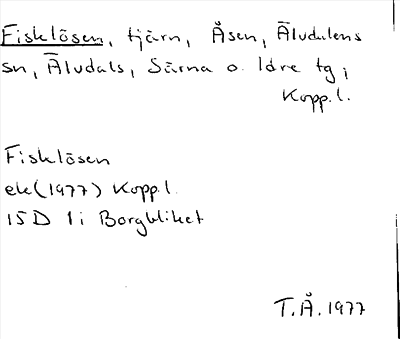 Fisklösen, tjärn, Åsen, Älvdalens
sn, Älvdals, Särna o. Idre tg;
Kopp. l.
Fisklösen
ek (1977) Kopp. l.
15 D 1 i Borgbliket
T. Å. 1977